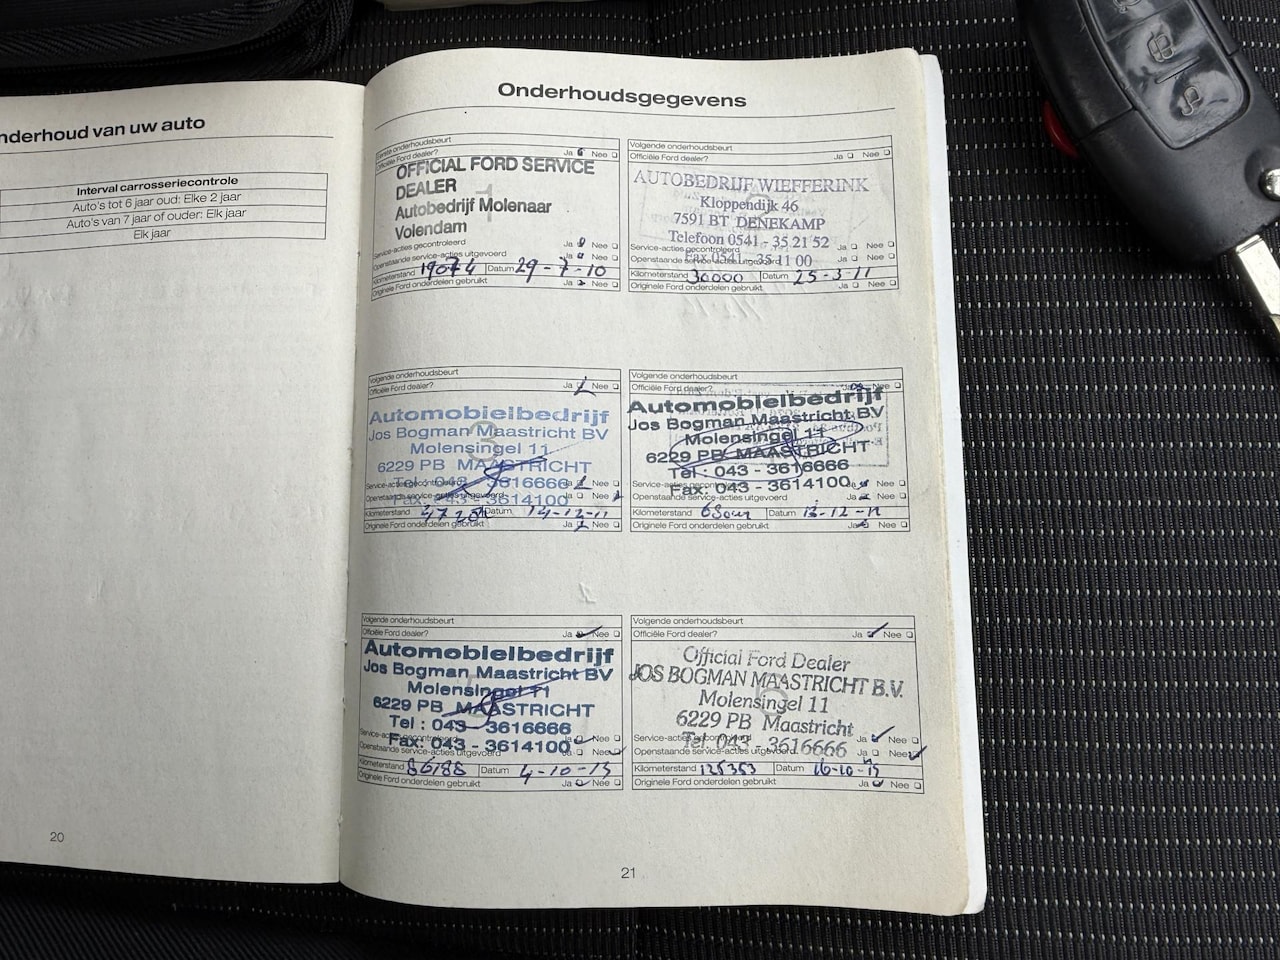 nderhoud van uw auto
Interval carrosseriecontrole
Auto's tot 6 jaar oud: Elke 2 jaar
Auto's van 7 jaar of ouder: Elk jaar
Elk jaar
20
Onderhoudsgegevens
Eerste onderhoudsbeurt
Officiële Ford dealer? Ja Nee
OFFICIAL FORD SERVICE
DEALER
1
Autobedrijf Molenaar
Volendam
Service-acties gecontroleerd Ja Nee
Openstaande service-acties uitgevoerd Ja Nee
Kilometerstand 19074 Datum 29-7-10
Originele Ford onderdelen gebruikt Ja Nee
Volgende onderhoudsbeurt
Officiële Ford dealer? Ja Nee
AUTOBEDRIJF WIEFFERINK
Kloppendijk 46
2
7591 BT DENEKAMP
Telefoon 0541 - 35 21 52
Service-acties gecontroleerd Ja Nee
Fax 0541 - 35 11 00
Openstaande service-acties uitgevoerd Ja Nee
Kilometerstand 30000 Datum 25-3-11
Originele Ford onderdelen gebruikt Ja Nee
Volgende onderhoudsbeurt
Officiële Ford dealer? Ja Nee
Automobielbedrijf
Jos Bogman Maastricht BV
3
Molensingel 11
6229 PB MAASTRICHT
Tel : 043 - 3616666
Service-acties gecontroleerd Ja Nee
Fax: 043 - 3614100
Openstaande service-acties uitgevoerd Ja Nee
Kilometerstand Datum 14-12-11
Originele Ford onderdelen gebruikt Ja Nee
Volgende onderhoudsbeurt
Officiële Ford dealer? Ja Nee
Automobielbedrijf
Jos Bogman Maastricht BV
Molensingel 11
6229 PB MAASTRICHT
Tel : 043 - 3616666
Service-acties gecontroleerd Ja Nee
Fax: 043 - 3614100
Openstaande service-acties uitgevoerd Ja Nee
Kilometerstand Datum 13-12-12
Originele Ford onderdelen gebruikt Ja Nee
Volgende onderhoudsbeurt
Officiële Ford dealer? Ja Nee
Automobielbedrijf
Jos Bogman Maastricht BV
Molensingel 11
6229 PB MAASTRICHT
Tel : 043 - 3616666
Service-acties gecontroleerd Ja Nee
Fax: 043 - 3614100
Openstaande service-acties uitgevoerd Ja Nee
Kilometerstand 86188 Datum 4-10-13
Originele Ford onderdelen gebruikt Ja Nee
Volgende onderhoudsbeurt
Officiële Ford dealer? Ja Nee
Official Ford Dealer
JOS BOGMAN MAASTRICHT B.V.
6
Molensingel 11
6229 PB Maastricht
Service-acties gecontroleerd Ja Nee
Tel. 043 - 3616666
Openstaande service-acties uitgevoerd Ja Nee
Kilometerstand 125353 Datum 16-10-15
Originele Ford onderdelen gebruikt Ja Nee
21